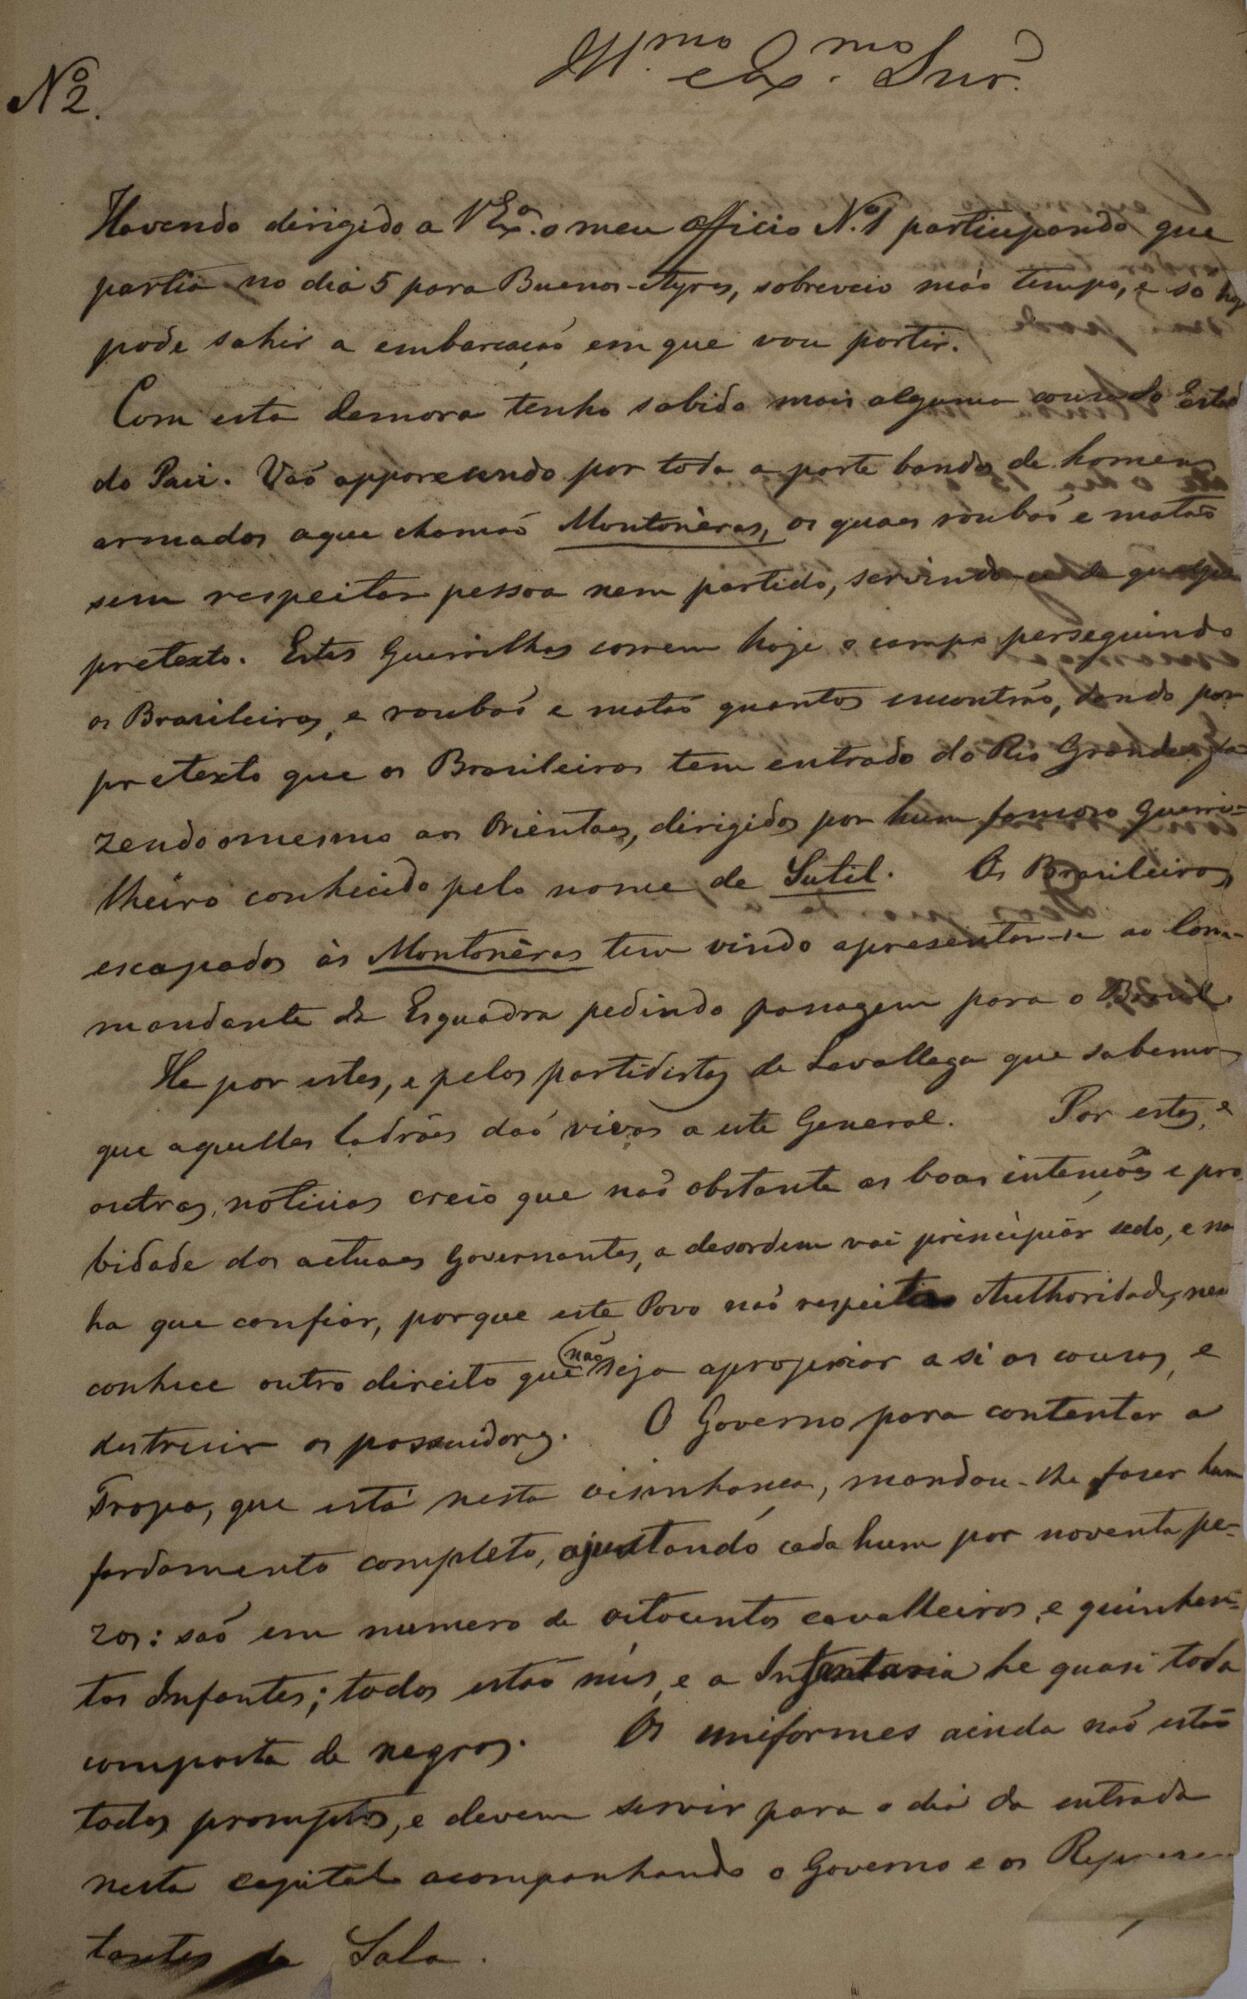 Ill.mo e Ex.mo Snr.
Nº 2.
Havendo dirigido a V Ex.ª o meu officio Nº 1 participando que
partia no dia 5 para Buenos-Ayres, sobreveio máo tempo, e só hoje
pode sahir a embarcação em que vou partir.
Com esta demora tenho sabido mais alguma cousa do Estado
do Paiz. Vaõ apparecendo por toda a parte bandos de homens
armados aque chamaõ Montonèras, os quaes roubaõ e mataõ
sem respeitar pessoa nem partido, servindo-se de qualquer
pretexto. Estas Guerrilhas correm hoje o campo perseguindo
os Brasileiros, e roubaõ e mataõ quantos encontrão, dando por
pretexto que os Brasileiros tem entrado do Rio Grande fa-
zendo o mesmo aos Orientaes, dirigidos por hum famoso Guerri-
lheiro conhecido pelo nome de Sutil. Os Brasileiros
escapados ás Montonèras tem vindo apresentar-se ao Com-
mandante da Esquadra pedindo passagem para o Brasil.
He por estes, e pelos partidistas de Lavallega que sabemos
que aquelles ladrões daõ vivas a este General. Por estas, e
outras noticias creio que naõ obstante as boas intenções e pro
bidade dos actuaes Governantes, a desordem vai principiar cedo, e na
ha que confiar, porque este Povo naõ respeita Authoridade, nem
conhece outro direito que não seja apropriar a si as cousas, e
destruir os possuidores. O Governo para contentar a
Tropa, que está nesta visinhança, mandou-lhe fazer hum
fardamento completo, ajustando cada hum por noventa pe-
zos: saõ em numero de oitocentos cavalleiros, e quinhen-
tos Infantes; todos estaõ nús, e a Infantaria he quasi toda
composta de negros. Os uniformes ainda naõ estaõ
todos promptos, e devem servir para o dia da entrada
nesta capital acompanhando o Governo e os Represen
tantes da Sala.